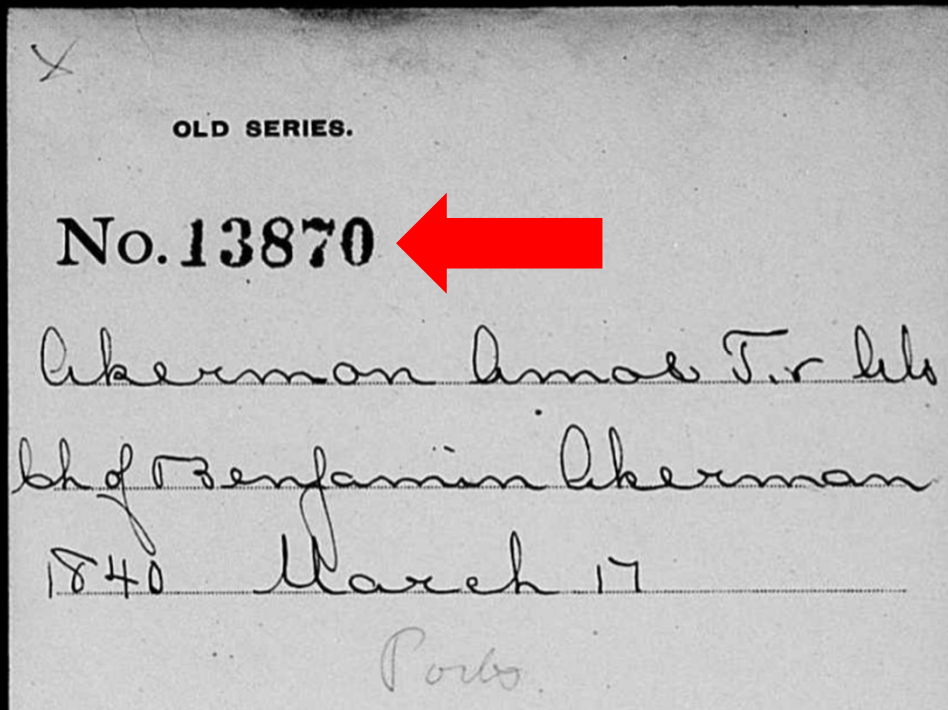 X
OLD SERIES.
No. 13870
Akerman Amos T. & als
ch of Benjamin Akerman
1840 March 17
Ports.